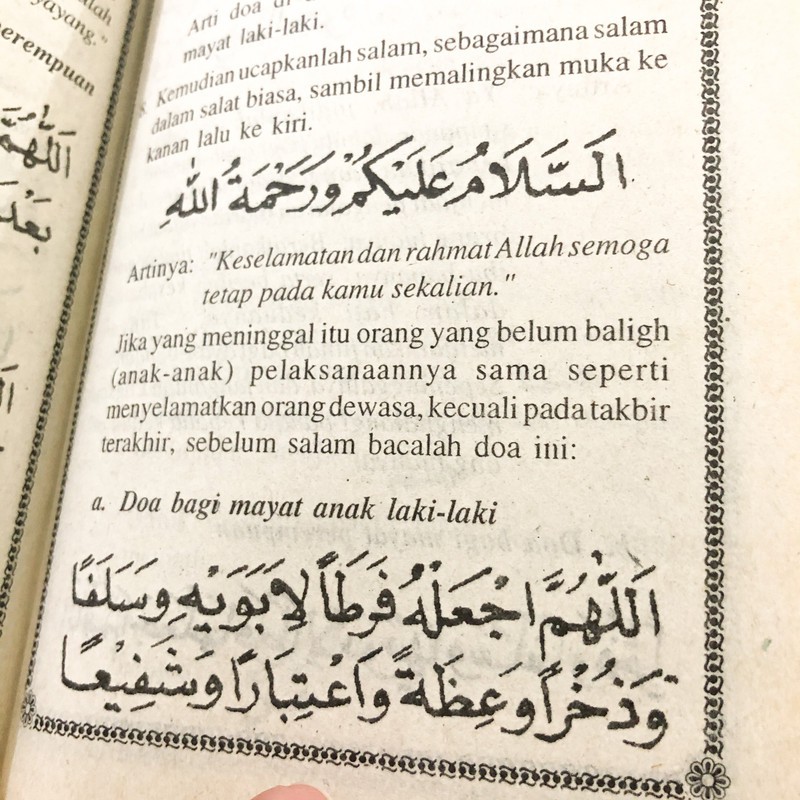 Arti doa di
mayat laki-laki.
Kemudian ucapkanlah salam, sebagaimana salam
dalam salat biasa, sambil memalingkan muka ke
kanan lalu ke kiri.
اَلسَّلَامُ عَلَيْكُمْ وَرَحْمَةُ اللّٰهِ
Artinya: "Keselamatan dan rahmat Allah semoga
tetap pada kamu sekalian."
Jika yang meninggal itu orang yang belum baligh
(anak-anak) pelaksanaannya sama seperti
menyelamatkan orang dewasa, kecuali pada takbir
terakhir, sebelum salam bacalah doa ini:
a. Doa bagi mayat anak laki-laki
اَللّٰهُمَّ اجْعَلْهُ فَرَطًا لِاَبَوَيْهِ وَسَلَفًا
وَذُخْرًا وَعِظَةً وَاعْتِبَارًا وَشَفِيْعًا